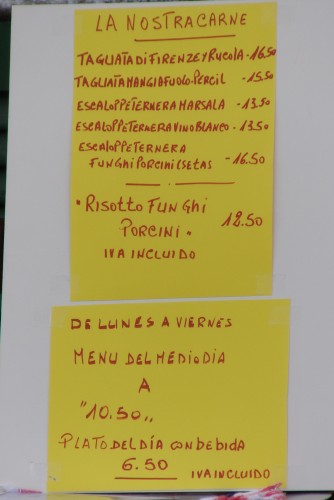 LA NOSTRA CARNE
TAGLIATA DI FIRENZE Y RUCOLA - 16.50
TAGLIATA MANGIAFUOLO-PERCIL - 15.50
ESCALOPPE TERNERA MARSALA - 13.50
ESCALOPPE TERNERA VINO BLANCO - 13.50
ESCALOPPE TERNERA
FUNGHI PORCINI (SETAS - 16.50
• RISOTTO FUNGHI
PORCINI • 12.50
IVA INCLUIDO
DE LUNES A VIERNES
MENU DEL MEDIODIA
A
"10.50,,
PLATO DEL DÍA CON BEBIDA
6.50 IVA INCLUIDO